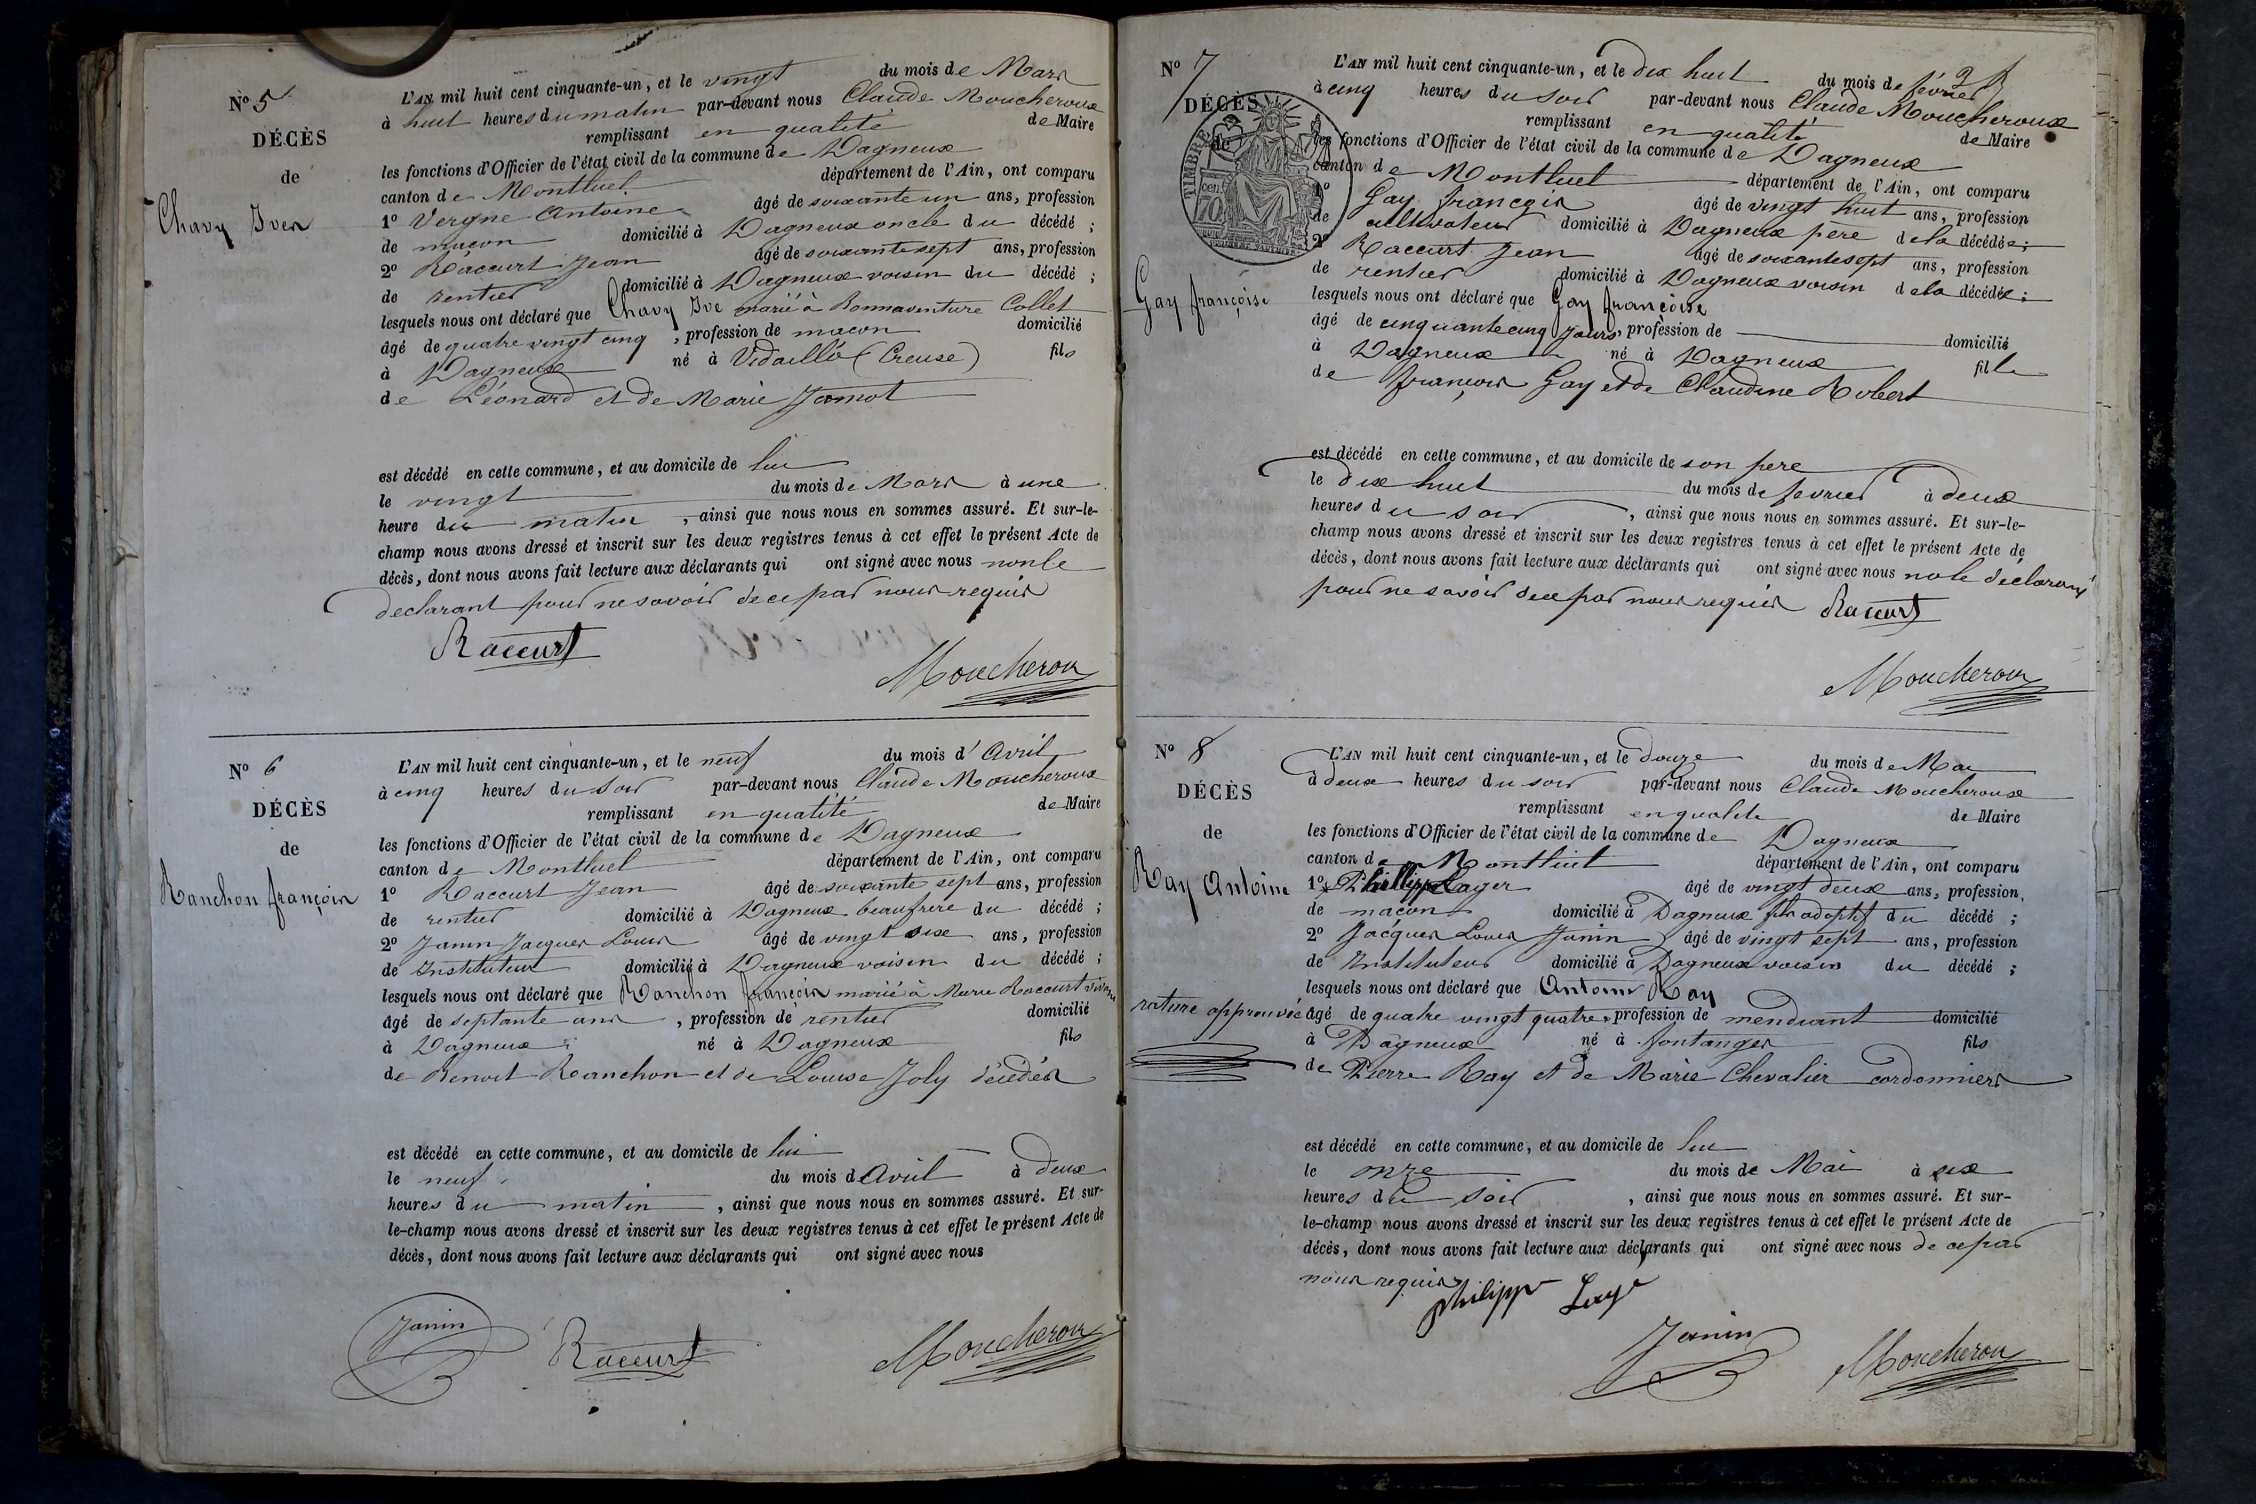 N° 5
DÉCÈS
de
Chavy Ives
L'AN mil huit cent cinquante-un, et le vingt du mois de Mars
à huit heures du matin par-devant nous Claude Moucheroux
remplissant en qualité de Maire
les fonctions d'Officier de l'état civil de la commune de Dagneux
canton de Montluel département de l'Ain, ont comparu
1° Vergne Antoine âgé de soixante un ans, profession
de maçon domicilié à Dagneux oncle du décédé ;
2° Raccurt Jean âgé de soixante sept ans, profession
de rentier domicilié à Dagneux voisin du décédé ;
lesquels nous ont déclaré que Chavy Ive marié à Bonnaventure Collet
âgé de quatre vingt cinq , profession de macon domicilié
à Dagneux né à Vidaillo (Creuse) fils
de Léonard et de Marie Jamot
est décédé en cette commune, et au domicile de lui
le vingt du mois de Mars à une
heure du matin , ainsi que nous nous en sommes assuré. Et sur-le-
champ nous avons dressé et inscrit sur les deux registres tenus à cet effet le présent Acte de
décès, dont nous avons fait lecture aux déclarants qui ont signé avec nous non le
declarant pour ne savoir de ce par nous requis
Raccurt
Moucheroux
N° 6
DÉCÈS
de
Ranchon françois
L'AN mil huit cent cinquante-un, et le neuf du mois d'Avril
à cinq heures du soir par-devant nous Claude Moucheroux
remplissant en qualité de Maire
les fonctions d'Officier de l'état civil de la commune de Dagneux
canton de Montluel département de l'Ain, ont comparu
1° Raccurt Jean âgé de soixante sept ans, profession
de rentier domicilié à Dagneux beaufrere du décédé ;
2° Janin Jacques Louis âgé de vingt six ans, profession
de Instituteur domicilié à Dagneux voisin du décédé ;
lesquels nous ont déclaré que Ranchon françois marié à Marie Raccurt
âgé de septante ans , profession de rentier domicilié
à Dagneux né à Dagneux fils
de Benoit Ranchon et de Louise Joly décédés
est décédé en cette commune, et au domicile de lui
le neuf du mois d Avril à deux
heures du matin , ainsi que nous nous en sommes assuré. Et sur-
le-champ nous avons dressé et inscrit sur les deux registres tenus à cet effet le présent Acte de
décès, dont nous avons fait lecture aux déclarants qui ont signé avec nous
Janin Raccurt Moucheroux
N° 7
DÉCÈS
de
TIMBRE
70
Gay françoise
L'AN mil huit cent cinquante-un, et le dix huit du mois de février
à cinq heures du soir par-devant nous Claude Moucheroux
remplissant en qualité de Maire
les fonctions d'Officier de l'état civil de la commune de Dagneux
canton de Montluel département de l'Ain, ont comparu
1° Gay françois âgé de vingt huit ans, profession
de cultivateur domicilié à Dagneux pere de la décédée ;
2° Raccurt Jean âgé de soixante sept ans, profession
de rentier domicilié à Dagneux voisin de la décédée ;
lesquels nous ont déclaré que Gay françoise
âgé de cinquante cinq jours, profession de domicilié
à Dagneux né à Dagneux fille
de françois Gay et de Claudine Robert
est décédé en cette commune, et au domicile de son pere
le dix huit du mois de fevrier à deux
heures du soir , ainsi que nous nous en sommes assuré. Et sur-le-
champ nous avons dressé et inscrit sur les deux registres tenus à cet effet le présent Acte de
décès, dont nous avons fait lecture aux déclarants qui ont signé avec nous no le déclarant
pour ne savoir de ce par nous requis Raccurt
Moucheroux
N° 8
DÉCÈS
de
Ray Antoine
rature approuvée
L'AN mil huit cent cinquante-un, et le douze du mois de Mai
à deux heures du soir par-devant nous Claude Moucheroux
remplissant en qualité de Maire
les fonctions d'Officier de l'état civil de la commune de Dagneux
canton de Montluel département de l'Ain, ont comparu
1° Philippe Layer âgé de vingt deux ans, profession,
de maçon domicilié à Dagneux fils adoptif du décédé ;
2° Jacques Louis Janin âgé de vingt sept ans, profession
de Instituteur domicilié à Dagneux voisin du décédé ;
lesquels nous ont déclaré que Antoine Ray
âgé de quatre vingt quatre, profession de mendiant domicilié
à Dagneux né à fontanges fils
de Pierre Ray et de Marie Chevalier cordonniers
est décédé en cette commune, et au domicile de lui
le onze du mois de Mai à six
heures du soir , ainsi que nous nous en sommes assuré. Et sur-
le-champ nous avons dressé et inscrit sur les deux registres tenus à cet effet le présent Acte de
décès, dont nous avons fait lecture aux déclarants qui ont signé avec nous de ce par
nous requis
philippe Laye
Janin Moucheroux